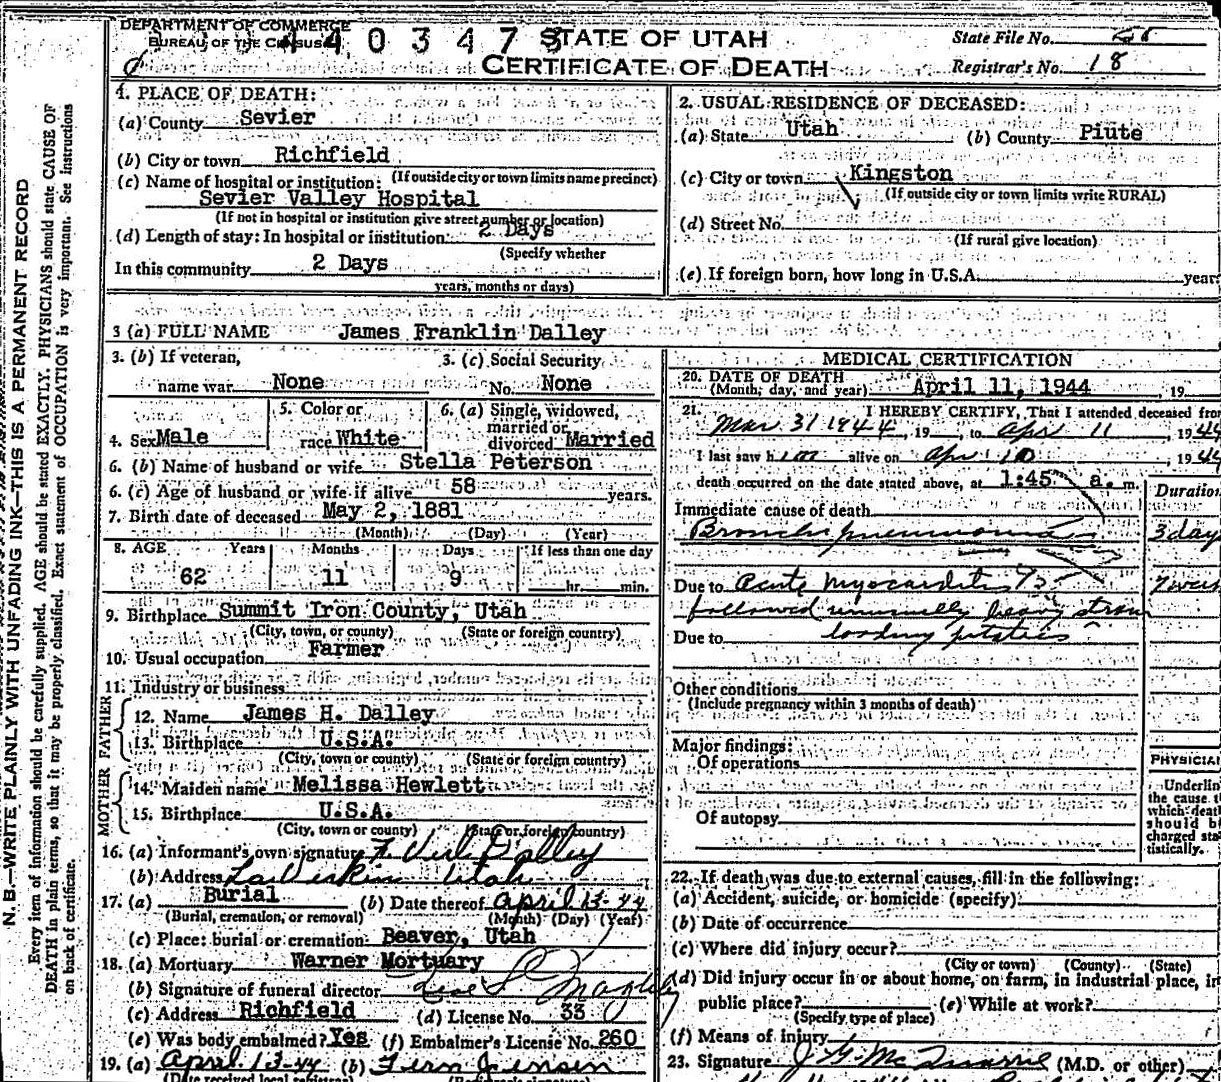 DEPARTMENT OF COMMERCE
BUREAU OF THE CENSUS
STATE OF UTAH
CERTIFICATE OF DEATH
State File No.
Registrar's No. 18
1. PLACE OF DEATH:
(a) County Sevier
(b) City or town Richfield
(If outside city or town limits name precinct)
(c) Name of hospital or institution:
Sevier Valley Hospital
(If not in hospital or institution give street number or location)
(d) Length of stay: In hospital or institution 2 Days
(Specify whether
In this community 2 Days
years, months or days)
2. USUAL RESIDENCE OF DECEASED:
(a) State Utah (b) County Piute
(c) City or town Kingston
(If outside city or town limits write RURAL)
(d) Street No.
(If rural give location)
(e) If foreign born, how long in U.S.A. years
3 (a) FULL NAME James Franklin Dalley
3. (b) If veteran, name war None
3. (c) Social Security No. None
4. Sex Male
5. Color or race White
6. (a) Single, widowed, married or divorced Married
6. (b) Name of husband or wife Stella Peterson
6. (c) Age of husband or wife if alive 58 years.
7. Birth date of deceased May 2, 1881
(Month) (Day) (Year)
8. AGE Years Months Days If less than one day
62 11 9 hr. min.
9. Birthplace Summit Iron County, Utah
(City, town, or county) (State or foreign country)
10. Usual occupation Farmer
11. Industry or business
FATHER
12. Name James H. Dalley
13. Birthplace U.S.A.
(City, town or county) (State or foreign country)
MOTHER
14. Maiden name Melissa Hewlett
15. Birthplace U.S.A.
(City, town or county) (State or foreign country)
16. (a) Informant's own signature Dalley
(b) Address LaVerkin Utah
17. (a) Burial (b) Date thereof April 13-44
(Burial, cremation, or removal) (Month) (Day) (Year)
(c) Place: burial or cremation Beaver, Utah
18. (a) Mortuary Warner Mortuary
(b) Signature of funeral director
(c) Address Richfield (d) License No. 33
(e) Was body embalmed? Yes (f) Embalmer's License No. 260
19. (a) April 13-44 (b) Fern Jensen
(Date received local registrar)
MEDICAL CERTIFICATION
20. DATE OF DEATH
(Month, day, and year) April 11, 1944, 19
21. I HEREBY CERTIFY, That I attended deceased from
Mar 31 1944, 19 , to Apr 11, 1944
I last saw him alive on Apr 10, 1944
death occurred on the date stated above, at 1:45 a. m.
Duration
Immediate cause of death
Bronchopneumonia 3 day
Due to Acute myocarditis
followed unusually heavy strain
Due to loading potatoes
Other conditions
(Include pregnancy within 3 months of death)
Major findings:
Of operations
Of autopsy
PHYSICIAN
Underline
the cause t
which death
should be
charged sta
tistically.
22. If death was due to external causes, fill in the following:
(a) Accident, suicide, or homicide (specify):
(b) Date of occurrence
(c) Where did injury occur?
(City or town) (County) (State)
(d) Did injury occur in or about home, on farm, in industrial place, in
public place? (e) While at work?
(Specify type of place)
(f) Means of injury
23. Signature (M.D. or other)
N. B.—WRITE PLAINLY WITH UNFADING INK—THIS IS A PERMANENT RECORD
Every item of information should be carefully supplied. AGE should be stated EXACTLY. PHYSICIANS should state CAUSE OF
DEATH in plain terms, so that it may be properly classified. Exact statement of OCCUPATION is very important. See instructions
on back of certificate.